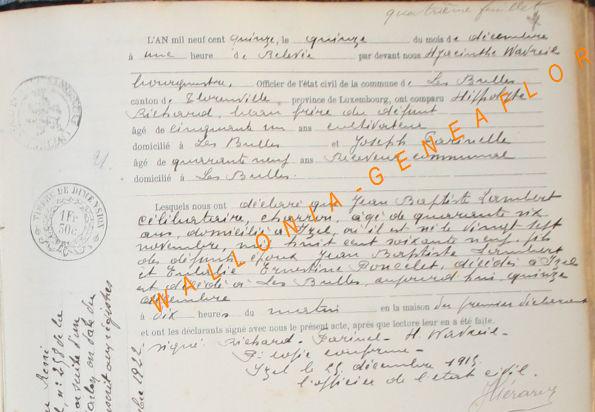 quatrième feuillet
L'AN mil neuf cent quinze, le quinze du mois de décembre
à une heure de Relevée par devant nous Hyacinthe Wavreil
bourgmestre, Officier de l'état civil de la commune de Les Bulles
canton de Florenville, province de Luxembourg, ont comparu Hippolyte
Richard, beau frère du défunt
âgé de cinquante un ans cultivateur
domicilié à Les Bulles et Joseph Parinelle
âgé de quarante neuf ans Receveur communal
domicilié à Les Bulles.
Lesquels nous ont déclaré que Jean Baptiste Lambert
célibataire, charron, âgé de quarante six
ans, domicilié à Izel, où il est né le vingt sept
novembre, mil huit cent soixante neuf, fils
des défunts époux Jean Baptiste Lambert
et Eulalie Ernestine Poncelet, décédés à Izel
est décédé à Les Bulles, aujourd'hui quinze
décembre
à dix heures du matin en la maison du premier déclarant
et ont les déclarants signé avec nous le présent acte, après que lecture leur en a été faite.
signé Richard - Parinel - H. Wavreil -
P. copie conforme -
Izel le 25 décembre 1915.
l'officier de l'état civil.
TIMBRE DE DIMENSION
1 Fr
50c
21.
WALLONIA-GENEAFLOR